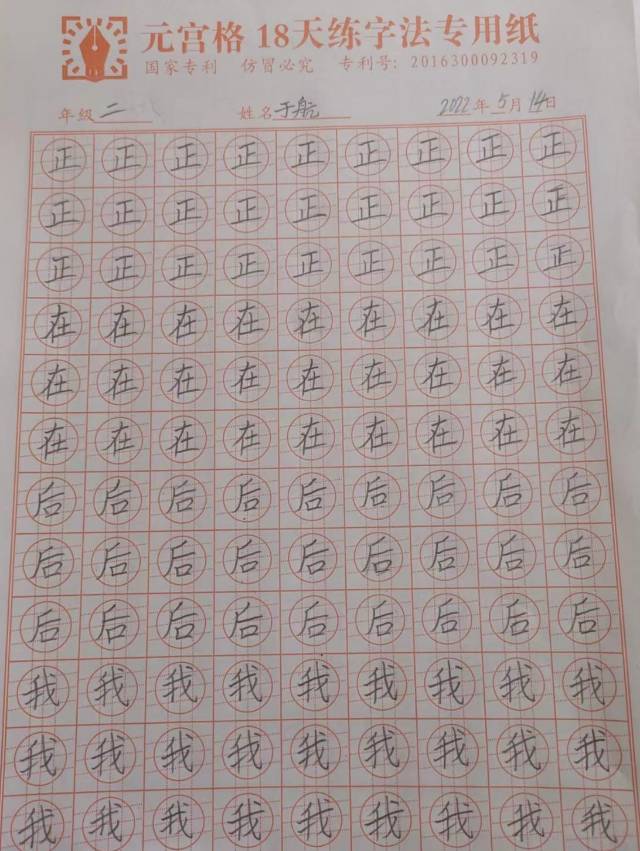 元宫格 18天练字法专用纸
国家专利 仿冒必究 专利号：2016300092319
年级二 姓名于航 2022年5月14日
正正正正正正正正正
正正正正正正正正正
正正正正正正正正正
在在在在在在在在在
在在在在在在在在在
在在在在在在在在在
后后后后后后后后后
后后后后后后后后后
后后后后后后后后后
我我我我我我我我我
我我我我我我我我我
我我我我我我我我我